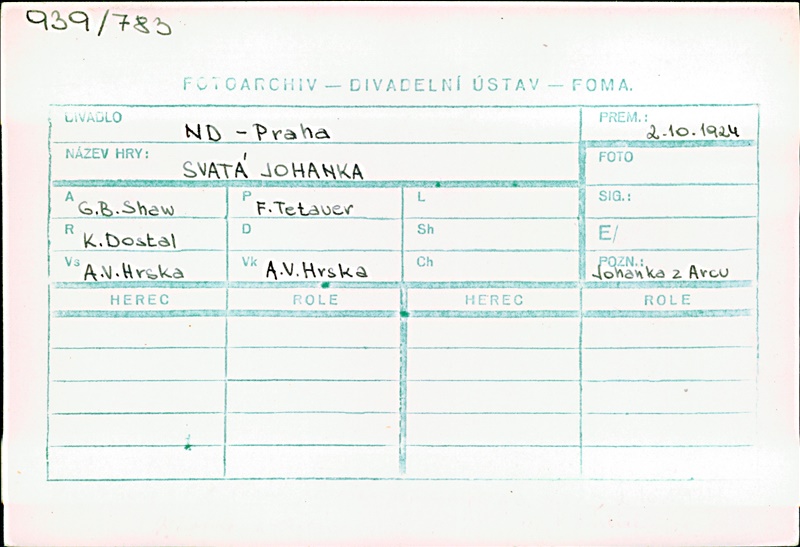 939/783
FOTOARCHIV — DIVADELNÍ ÚSTAV — FOMA.
DIVADLO ND - Praha PREM.: 2.10.1924
NÁZEV HRY: SVATÁ JOHANKA FOTO
A G.B.Shaw P F.Tetauer L SIG.:
R K.Dostal D Sh E/
Vs A.V.Hrska Vk A.V.Hrska Ch POZN.: Johanka z Arcu
HEREC ROLE HEREC ROLE